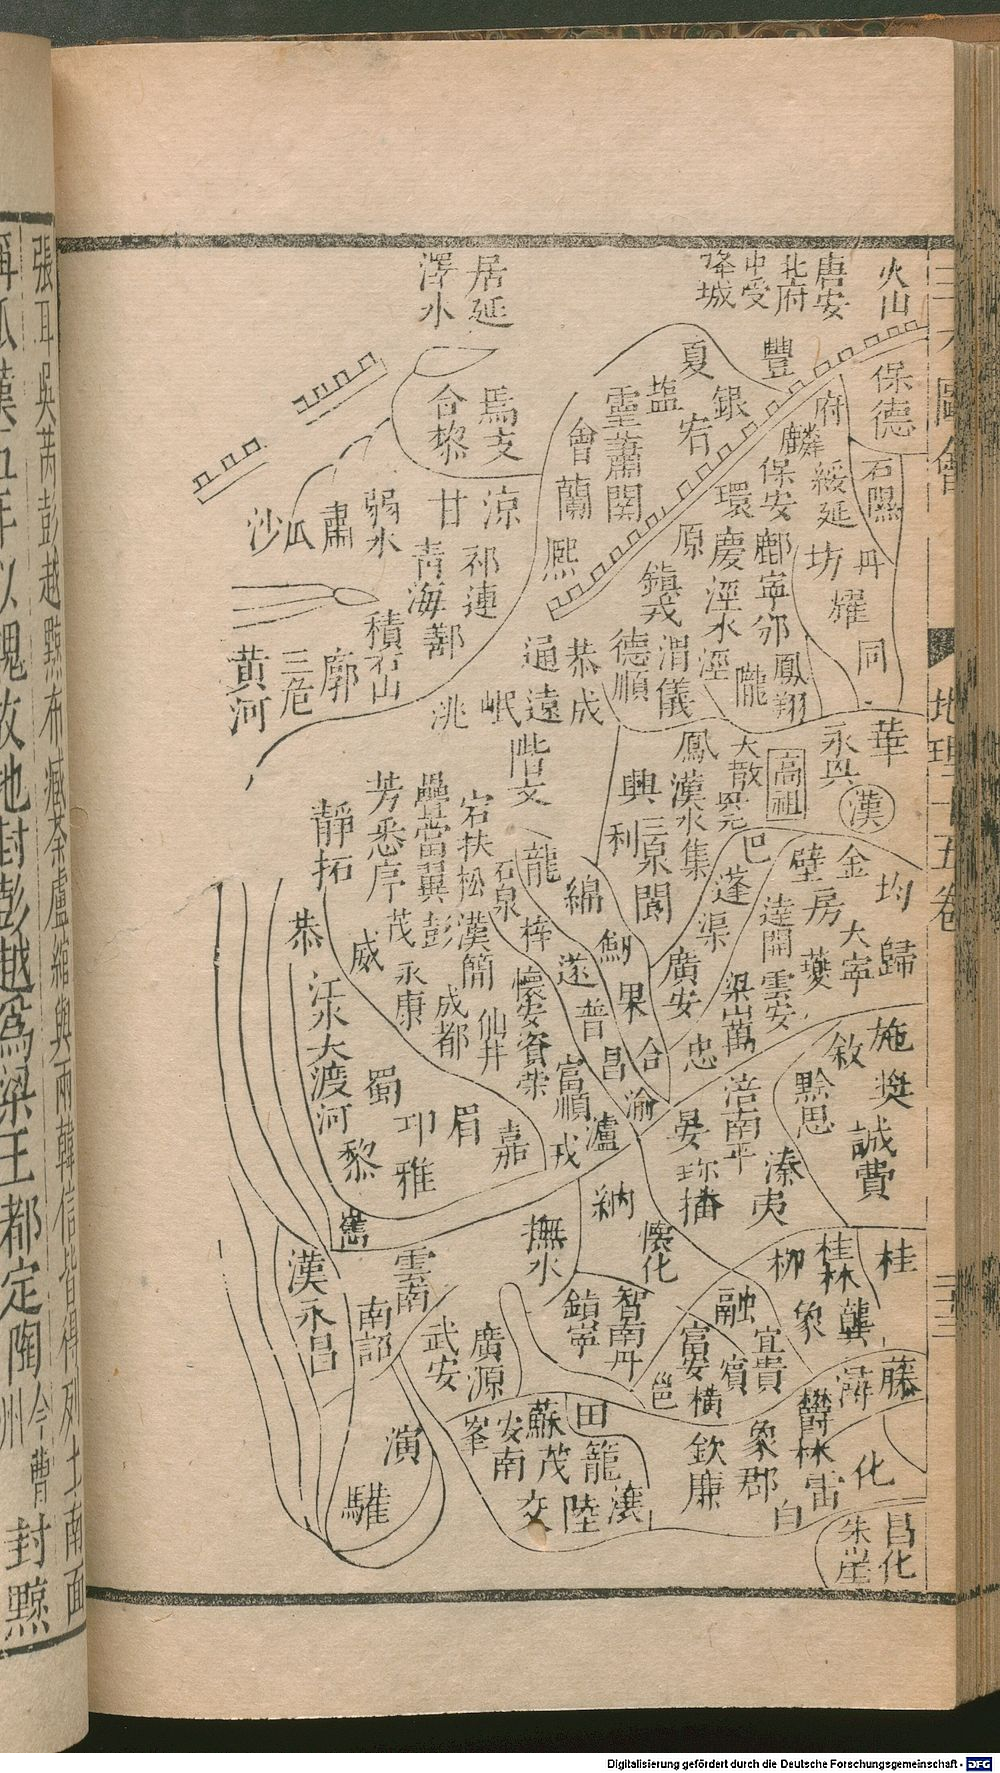 火山
唐安
北府
中受
降城
居延
澤水
保德
豐
夏
府
麟
銀
宕
鹽
靈
蕭關
會
蘭
熙
馬支
合黎
涼
甘
祁連
青海
鄯
弱水
肅
瓜
沙
積石山
廓
三危
黃河
石隰
綏延
保安
環
慶
原
鎮戎
鄜
寧
邠
坊
丹
耀
同
涇水
涇
渭
儀
德順
隴
鳳翔
通遠
恭
成
岷
洮
階文
華
永興
漢
高祖
大散
鳳
漢水
集
興
三泉
利
閬
巴
蓬
渠
廣安
金
均
房
壁
達
開
大寧
歸
夔
雲安
梁山
萬
忠
龍
綿
石泉
梓
遂
果
普
合
昌
渝
懷安
資
榮
富順
瀘
戎
宕
扶
松
疊
當
翼
芳
悉
靜
拓
茂
彭
漢
簡
永康
成都
仙井
威
恭
江水
大渡河
蜀
邛
眉
雅
嘉
黎
嶲
施
獎
敘
黔
思
誠
費
涪
南平
溱
夷
晏
珍
播
納
撫水
懷化
漢永昌
雲南
南詔
武安
廣源
鎮寧
智
南丹
桂
桂林
柳
象
龔
融
宜
貴
賓
富安
橫
邕
藤
潯
鬱林
化
雷
白
象郡
欽
廉
田
籠
瀼
陸
蘇茂
安南
峯
交
演
驩
昌化
朱崖
三才圖會
地理十五卷
張耳吳芮彭越黥布臧荼盧綰與兩韓信皆得列土南面
稱孤漢五年以魏故地封彭越為梁王都定陶今曹州封黥
Digitalisierung gefördert durch die Deutsche Forschungsgemeinschaft - DFG